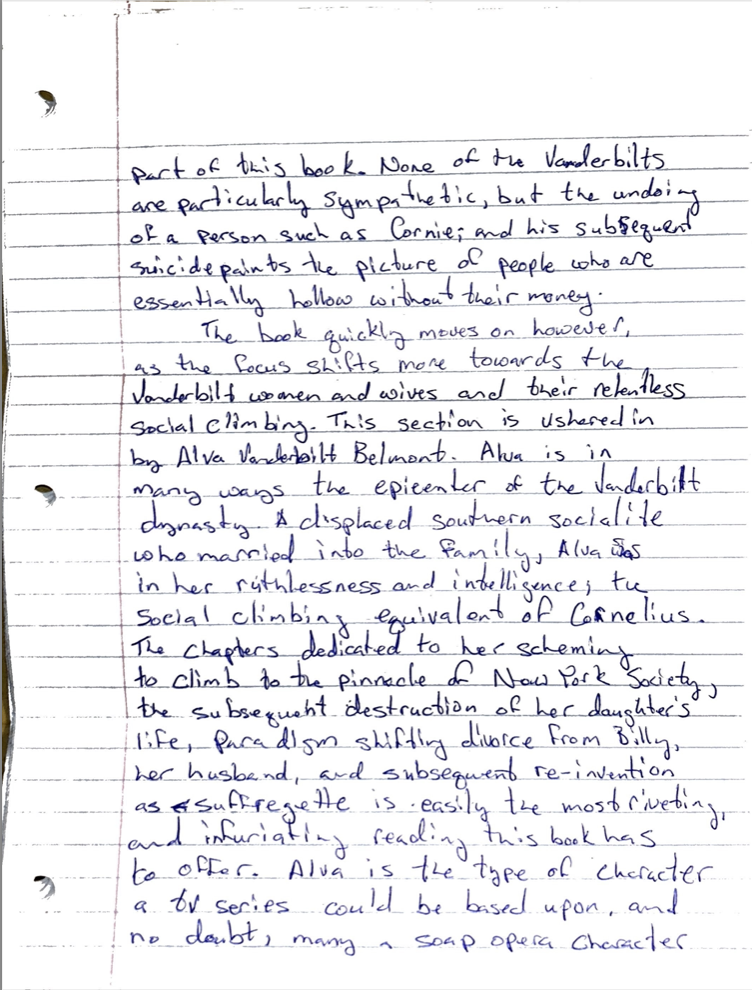 part of this book. None of the Vanderbilts
are particularly sympathetic, but the undoing
of a person such as Cornie; and his subsequent
suicide paints the picture of people who are
essentially hollow without their money.
The book quickly moves on however,
as the focus shifts more towards the
Vanderbilt women and wives and their relentless
social climbing. This section is ushered in
by Alva Vanderbilt Belmont. Alva is in
many ways the epicenter of the Vanderbilt
dynasty. A displaced southern socialite
who married into the family, Alva was
in her ruthlessness and intelligence; the
social climbing equivalent of Cornelius.
The chapters dedicated to her scheming
to climb to the pinnacle of New York Society,
the subsequent destruction of her daughter's
life, paradigm shifting divorce from Billy,
her husband, and subsequent re-invention
as a suffregette is easily the most riveting,
and infuriating reading this book has
to offer. Alva is the type of character
a tv series could be based upon, and
no doubt, many a soap opera character